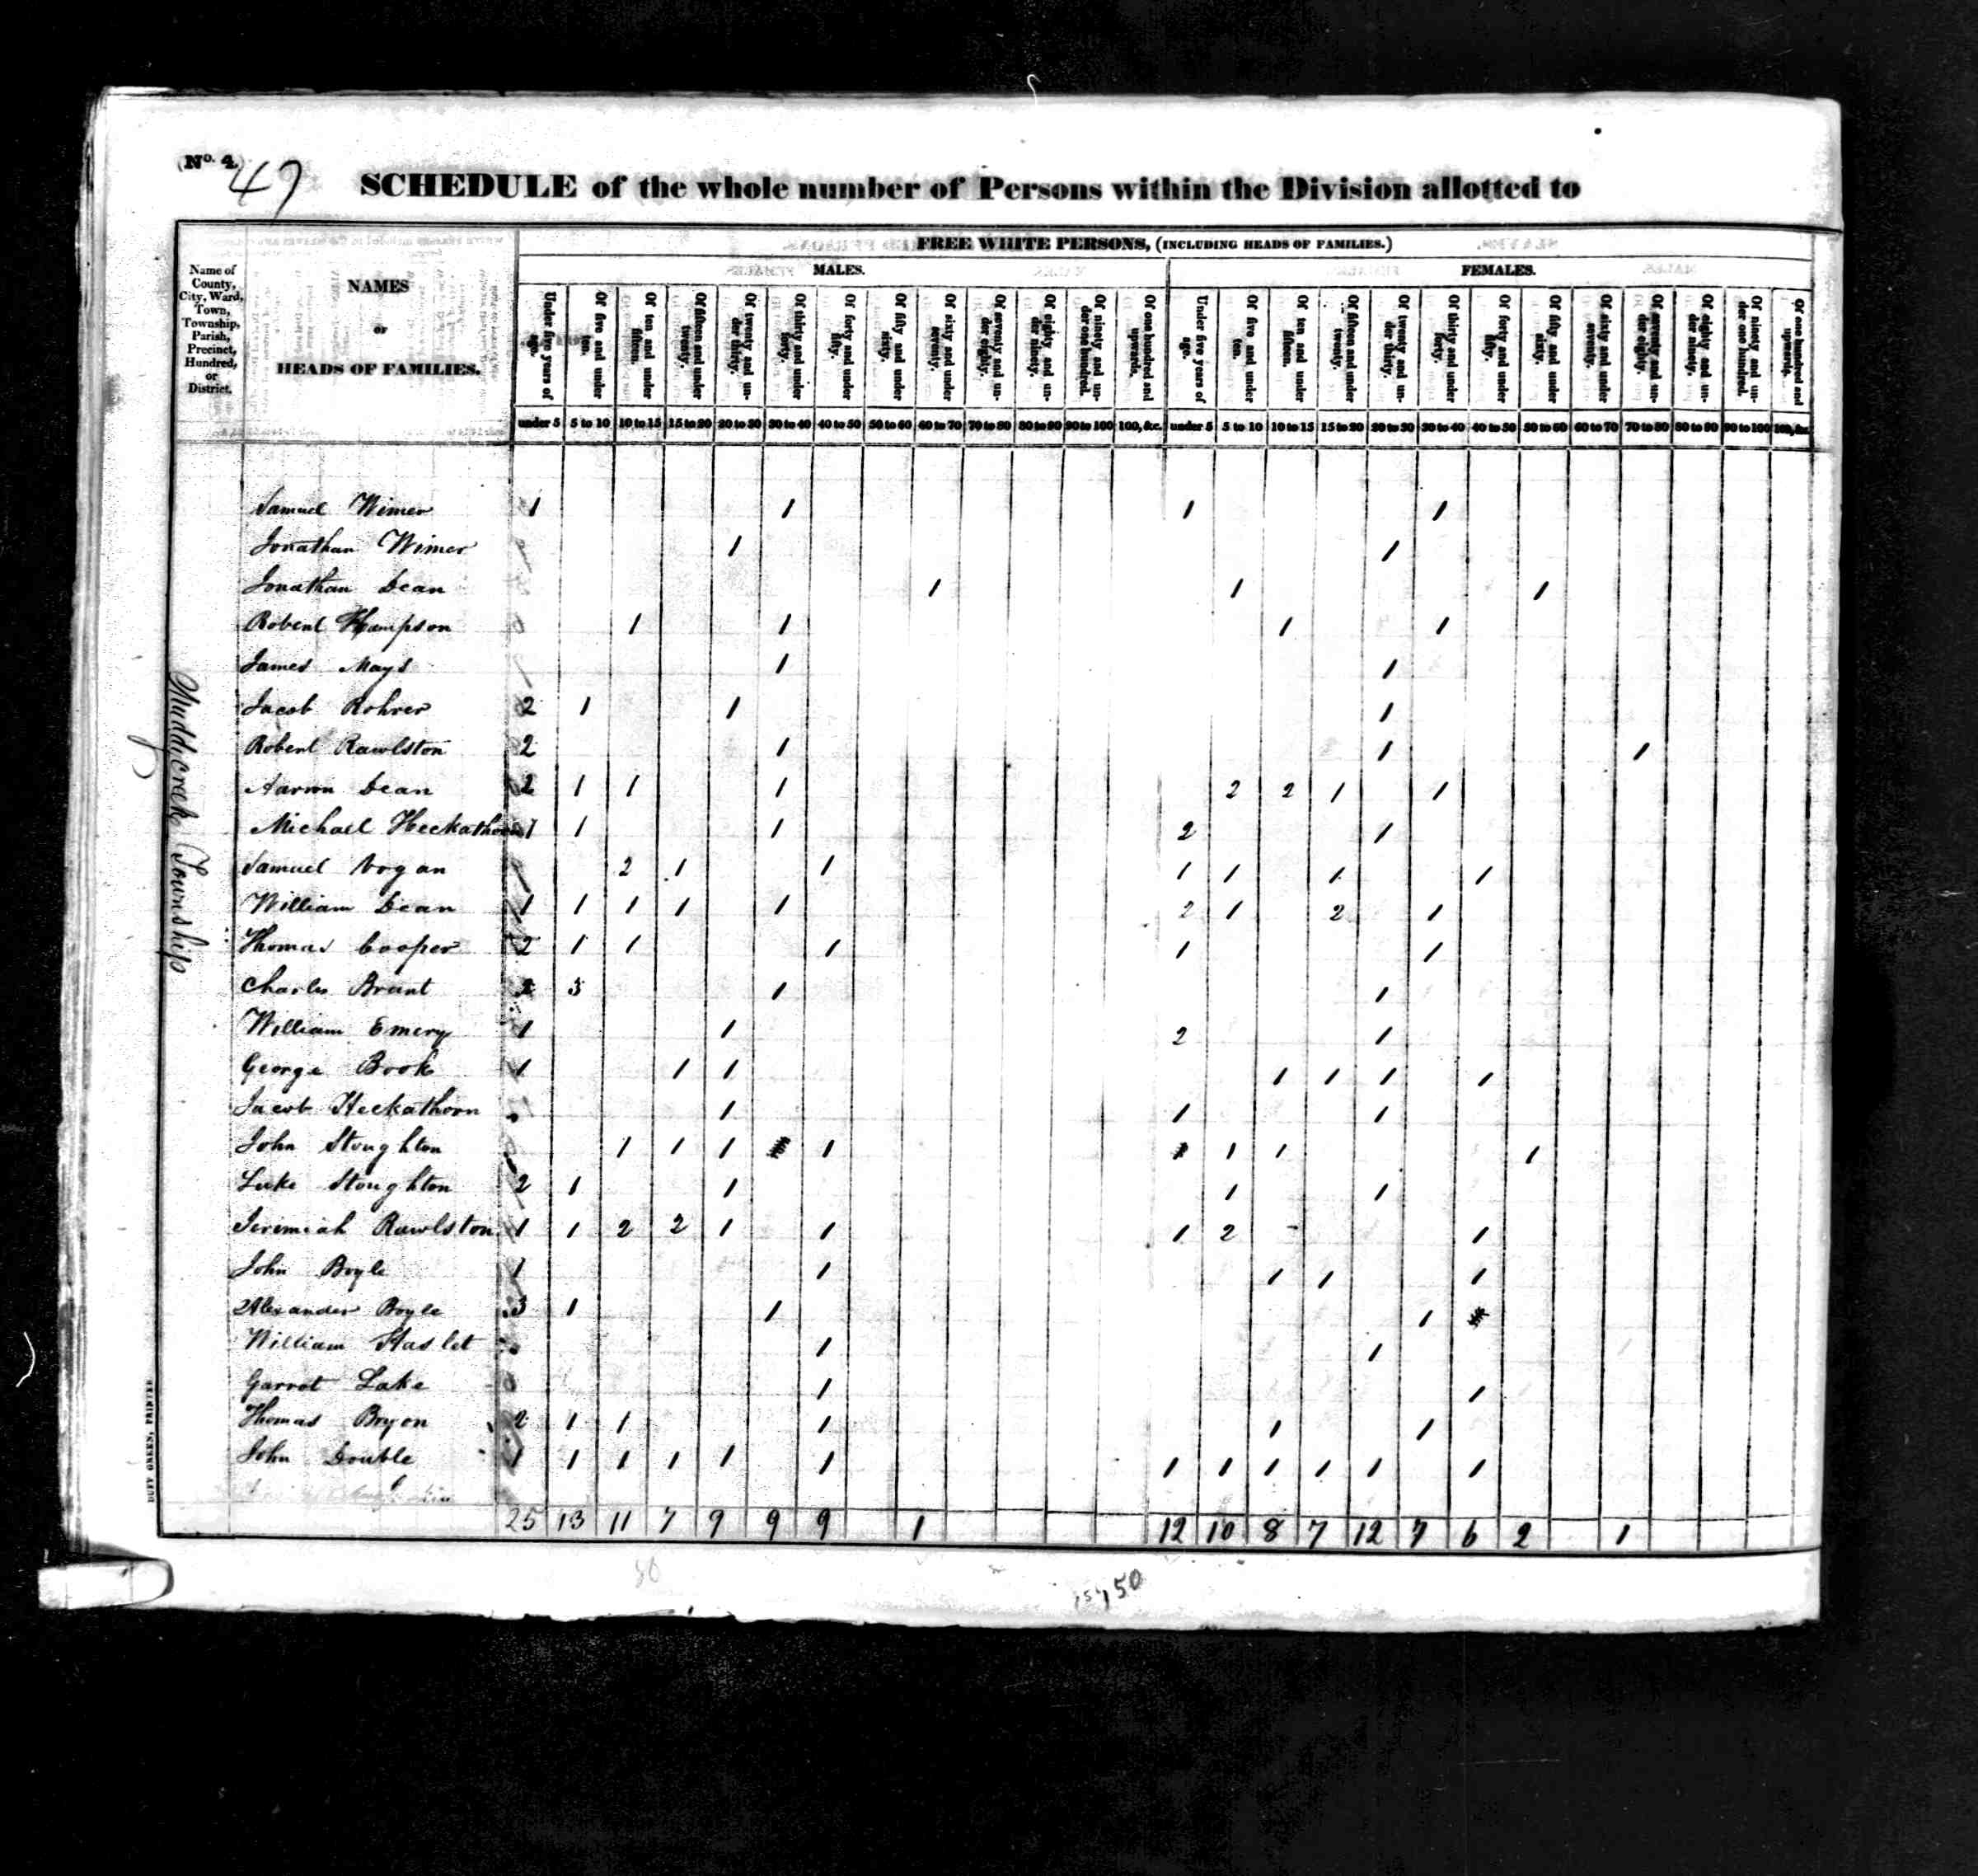 (No. 4.)
47
SCHEDULE of the whole number of Persons within the Division allotted to
Name of County, City, Ward, Town, Township, Parish, Precinct, Hundred, or District.
NAMES
or
HEADS OF FAMILIES.
FREE WHITE PERSONS, (INCLUDING HEADS OF FAMILIES.)
MALES. FEMALES.
Under five years of age. Of five and under ten. Of ten and under fifteen. Of fifteen and under twenty. Of twenty and under thirty. Of thirty and under forty. Of forty and under fifty. Of fifty and under sixty. Of sixty and under seventy. Of seventy and under eighty. Of eighty and under ninety. Of ninety and under one hundred. Of one hundred and upwards. Under five years of age. Of five and under ten. Of ten and under fifteen. Of fifteen and under twenty. Of twenty and under thirty. Of thirty and under forty. Of forty and under fifty. Of fifty and under sixty. Of sixty and under seventy. Of seventy and under eighty. Of eighty and under ninety. Of ninety and under one hundred. Of one hundred and upwards.
under 5 5 to 10 10 to 15 15 to 20 20 to 30 30 to 40 40 to 50 50 to 60 60 to 70 70 to 80 80 to 90 90 to 100 100, &c. under 5 5 to 10 10 to 15 15 to 20 20 to 30 30 to 40 40 to 50 50 to 60 60 to 70 70 to 80 80 to 90 90 to 100 100, &c.
Muddicreek Township
Samuel Wimer 1 1 1 1
Jonathan Wimer 1 1
Jonathan Dean 1 1 1
Robert Hampson 1 1 1 1
James Mays 1 1
Jacob Rohrer 2 1 1 1
Robert Rawlston 2 1 1 1
Aaron Dean 2 1 1 1 2 2 1 1
Michael Heckathorn 1 1 1 2 1
Samuel Vogan 2 1 1 1 1 1 1
William Dean 1 1 1 1 1 2 1 2 1
Thomas Cooper 2 1 1 1 1 1
Charles Brant 2 3 1 1
William Emery 1 1 2 1
George Book 1 1 1 1 1 1 1
Jacob Heckathorn 1 1 1
John Stoughton 1 1 1 1 1 1 1
Luke Stoughton 2 1 1 1 1
Jeremiah Rawlston 1 1 2 2 1 1 1 2 1
John Boyle 1 1 1 1 1
Alexander Boyle 3 1 1 1
William Haslet 1 1
Garrot Lake 1 1
Thomas Bryon 2 1 1 1 1 1
John Double 1 1 1 1 1 1 1 1 1 1 1 1
25 13 11 7 9 9 9 1 12 10 8 7 12 7 6 2 1
DUFF GREEN, PRINTER
50